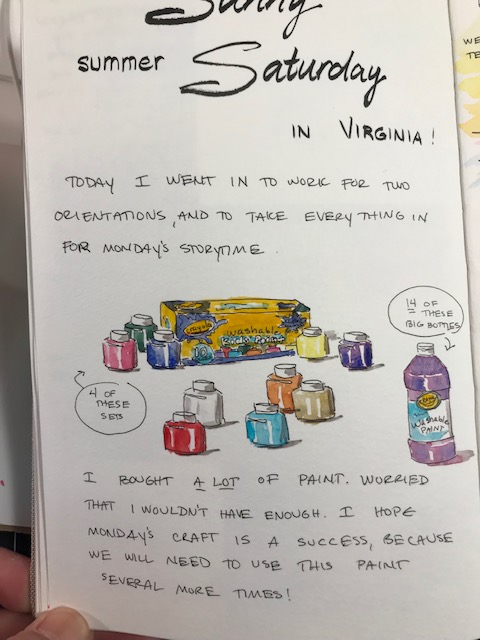 Sunny
summer Saturday
IN VIRGINIA!
TODAY I WENT IN TO WORK FOR TWO
ORIENTATIONS, AND TO TAKE EVERYTHING IN
FOR MONDAY'S STORYTIME.
14 OF
THESE
BIG BOTTLES
Crayola
Washable
10
4 OF
THESE
SETS
Washable
PAINT
I BOUGHT A LOT OF PAINT. WORRIED
THAT I WOULDN'T HAVE ENOUGH. I HOPE
MONDAY'S CRAFT IS A SUCCESS, BECAUSE
WE WILL NEED TO USE THIS PAINT
SEVERAL MORE TIMES!
WE